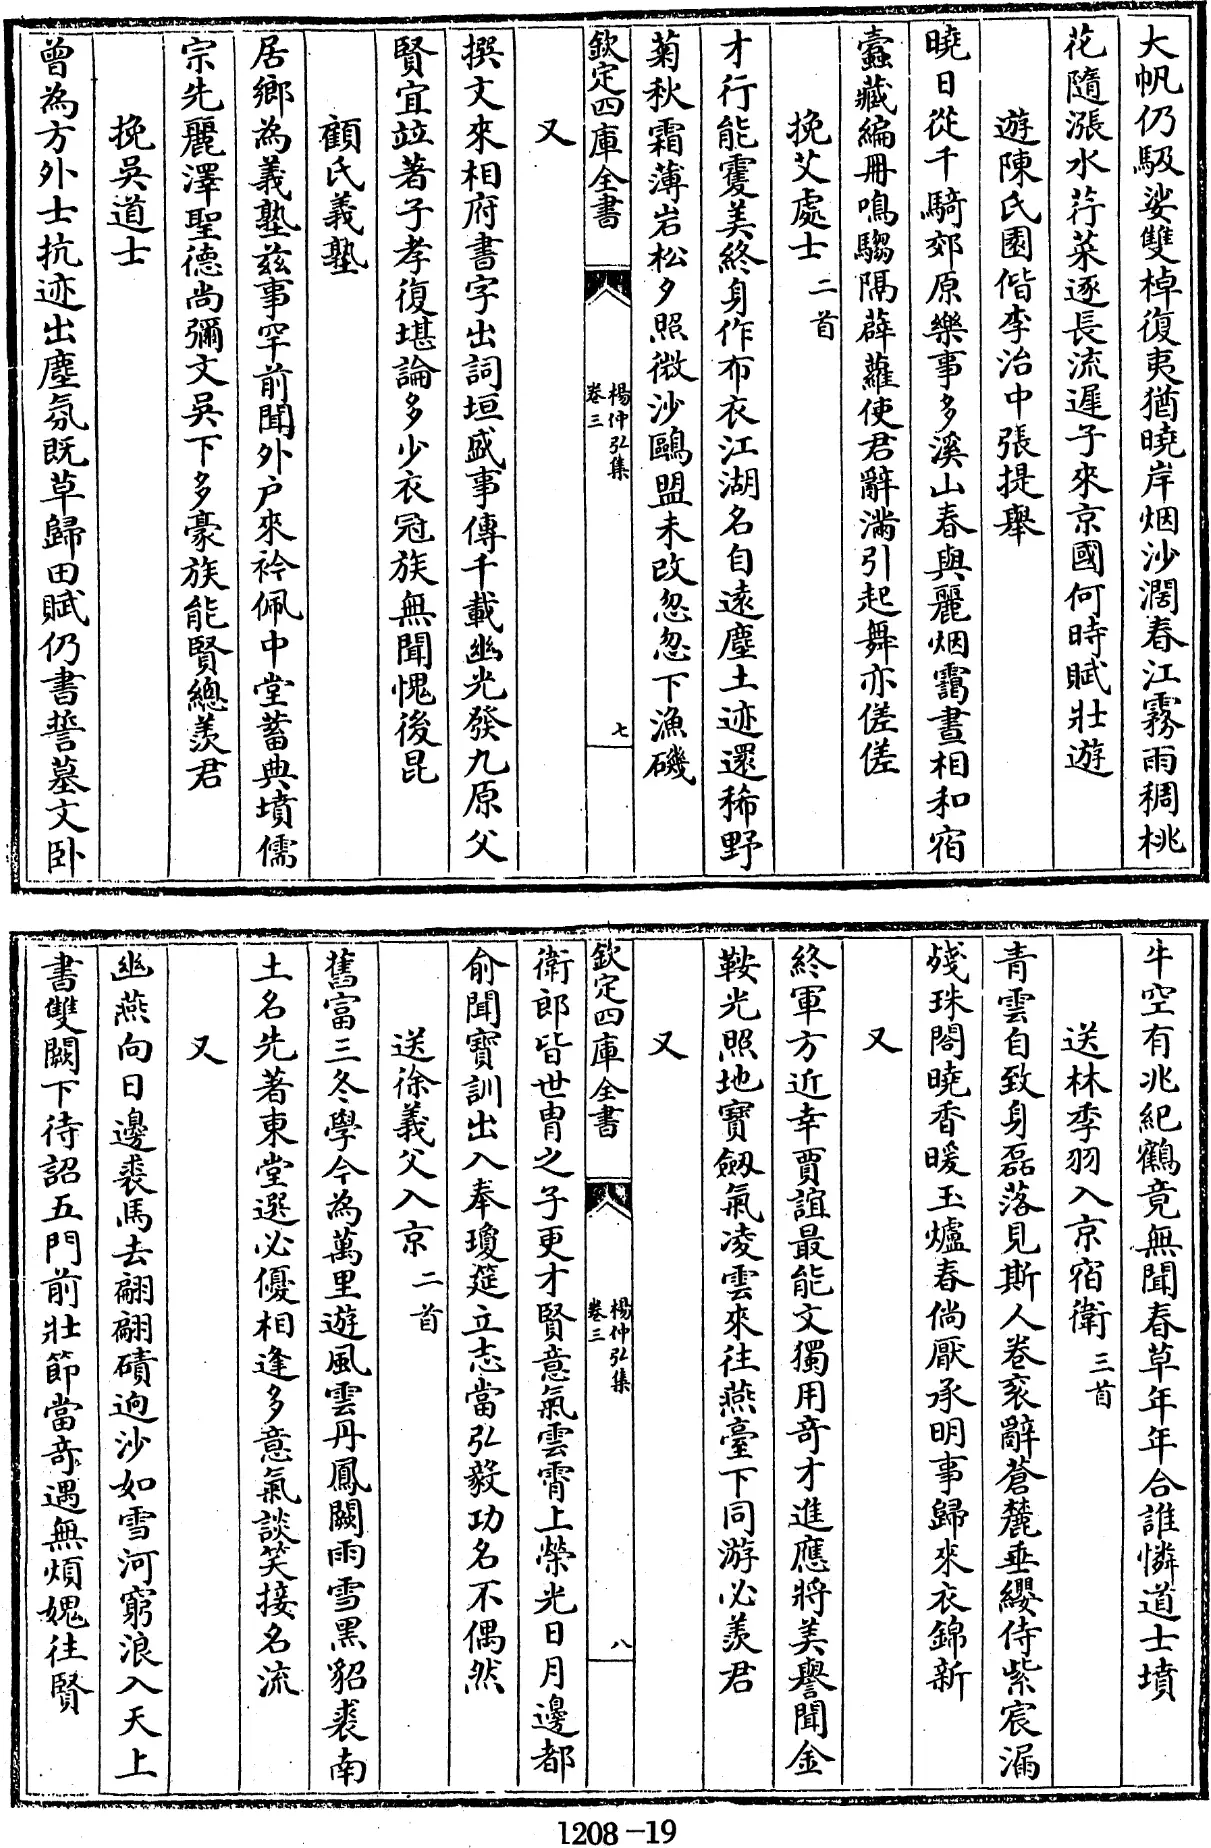 大帆仍馺娑雙棹復夷猶曉岸烟沙濶春江霧雨稠桃
花隨漲水荇菜逐長流遲子來京國何時賦壯遊
遊陳氏園偕李治中張提舉
曉日從千騎郊原樂事多溪山春與麗烟靄晝相和宿
蠧藏編冊鳴騶隔薜蘿使君辭滿引起舞亦傞傞
挽艾處士二首
才行能䨥美終身作布衣江湖名自遠塵土迹還稀野
菊秋霜薄岩松夕照微沙鷗盟未改忽忽下漁磯
欽定四庫全書
楊仲弘集
卷三
七
又
撰文來相府書字出詞垣盛事傳千載幽光發九原父
賢宜竝著子孝復堪論多少衣冠族無聞愧後昆
顧氏義塾
居鄉為義塾兹事罕前聞外户來衿佩中堂蓄典墳儒
宗先麗澤聖德尚彌文吳下多豪族能賢總羨君
挽吳道士
曾為方外士抗迹出塵氛既草歸田賦仍書誓墓文卧
牛空有兆紀鶴竟無聞春草年年合誰憐道士墳
送林季羽入京宿衛三首
青雲自致身磊落見斯人卷衮辭蒼麓垂纓侍紫宸漏
殘珠閣曉香暖玉爐春倘厭承明事歸來衣錦新
又
終軍方近幸賈誼最能文獨用奇才進應將美譽聞金
鞍光照地寶劒氣凌雲來往燕臺下同游必羨君
又
欽定四庫全書
楊仲弘集
卷三
八
衛郎皆世胄之子更才賢意氣雲霄上榮光日月邊都
俞聞寶訓出入奉瓊筵立志當弘毅功名不偶然
送徐義父入京二首
舊富三冬學今為萬里遊風雲丹鳳闕雨雪黑貂裘南
土名先著東堂選必優相逢多意氣談笑接名流
又
幽燕向日邊裘馬去翩翩磧迥沙如雪河窮浪入天上
書雙闕下待詔五門前壯節當奇遇無煩媿往賢
1208-19